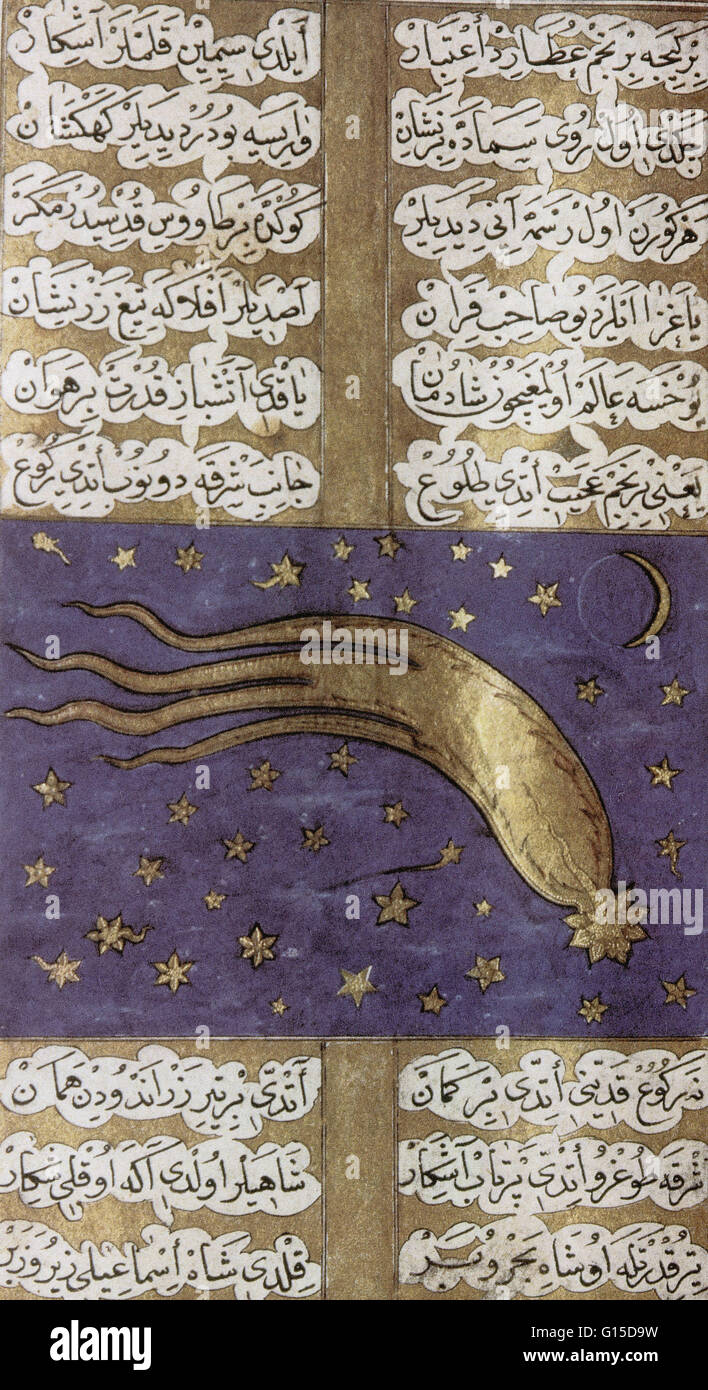 بر كیجه بر نجم عطارد اعتبار
أیلدی سیمین قلملر آشكار
چكدی اول روی سماده بر نشان
واریسه بودر دیدیلر كهكشان
هر كورن اول رسمه آنی دیدیلر
كوكده بر طاووس قدسیدر مكر
یا غزا بو صاحب قران
آصدیلر افلاكه تیغ زرنشان
یوخسه عالم اولمغیچون شادمان
یاقدی آتشباز قدرت بر هوان
یعنی بر نجم عجب أتدی طلوع
جانب شرقه دونوب أتدی ركوع
نه ركوع قدینی أتدی بر كمان
أتدی بر تیر زر اندودن همان
شرقه طوغرو أتدی پرتاب آشكار
شاهیلر اولدی اكه اوقلی شكار
قدرتله او شاه بحر و بر
قلدی شاه أسماعیلی زیر و زبر
alamy
Image ID: G15D9W
www.alamy.com